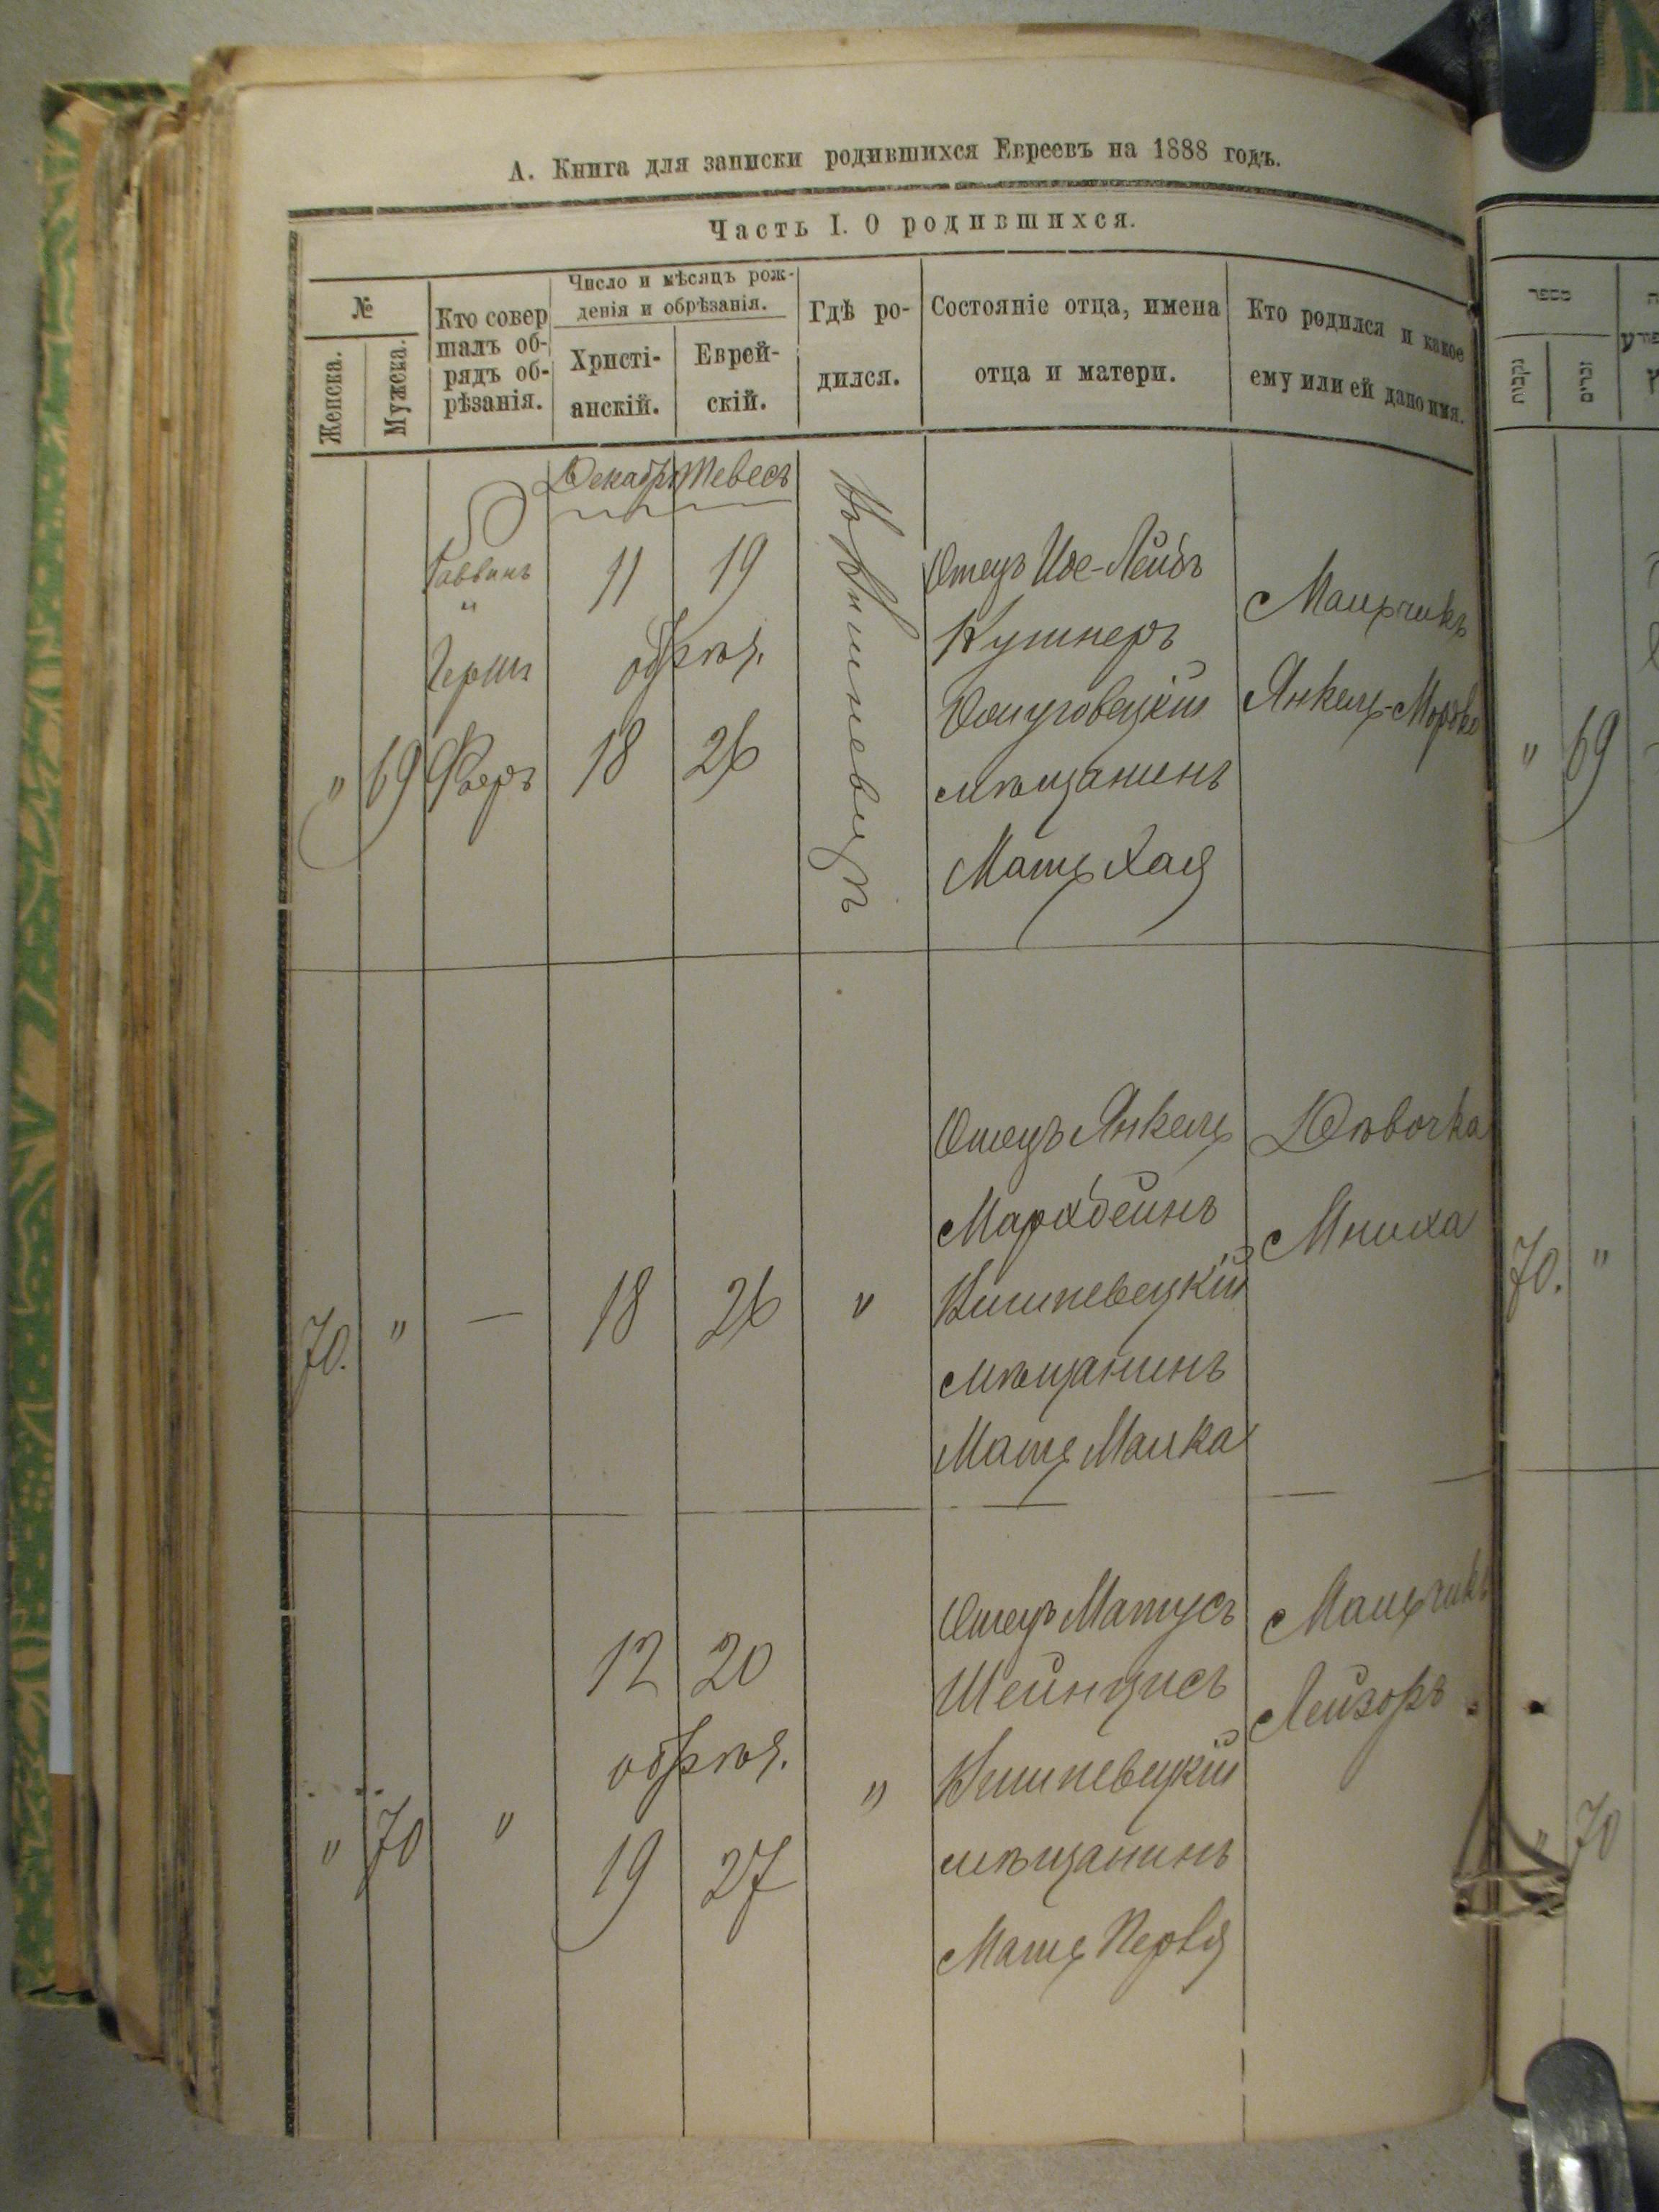 А. Книга для записки родившихся Евреевъ на 1888 годъ.
Часть I. О родившихся.
№
Женска.
Мужеска.
Кто совер
шалъ об-
рядъ об-
рѣзанія.
Число и мѣсяцъ рож-
денія и обрѣзанія.
Христі-
анскій.
Еврей-
скій.
Гдѣ ро-
дился.
Состояніе отца, имена
отца и матери.
Кто родился и какое
ему или ей дано имя.
Декабрь Тевесъ
" 69
Раввинъ
"
Герш
Фаеръ
11 19
обрѣз.
18 26
Отецъ Иос-Лейбъ
Кушнеръ
мѣщанинъ
Мать Хая
Мальчикъ
Янкель-Мордко
70. " — 18 26 "
Отецъ Янкель
Мархбейнъ
Кишневецкій
мѣщанинъ
Мать Малка
Дѣвочка
Мниха
" 70 "
12 20
обрѣз.
19 27
"
Отецъ Матусъ
Шейнцисъ
Кишневецкій
мѣщанинъ
Мать Перля
Мальчикъ
Лейзоръ
מספר
נקבות
זכרים
" 69
70. "
" 70